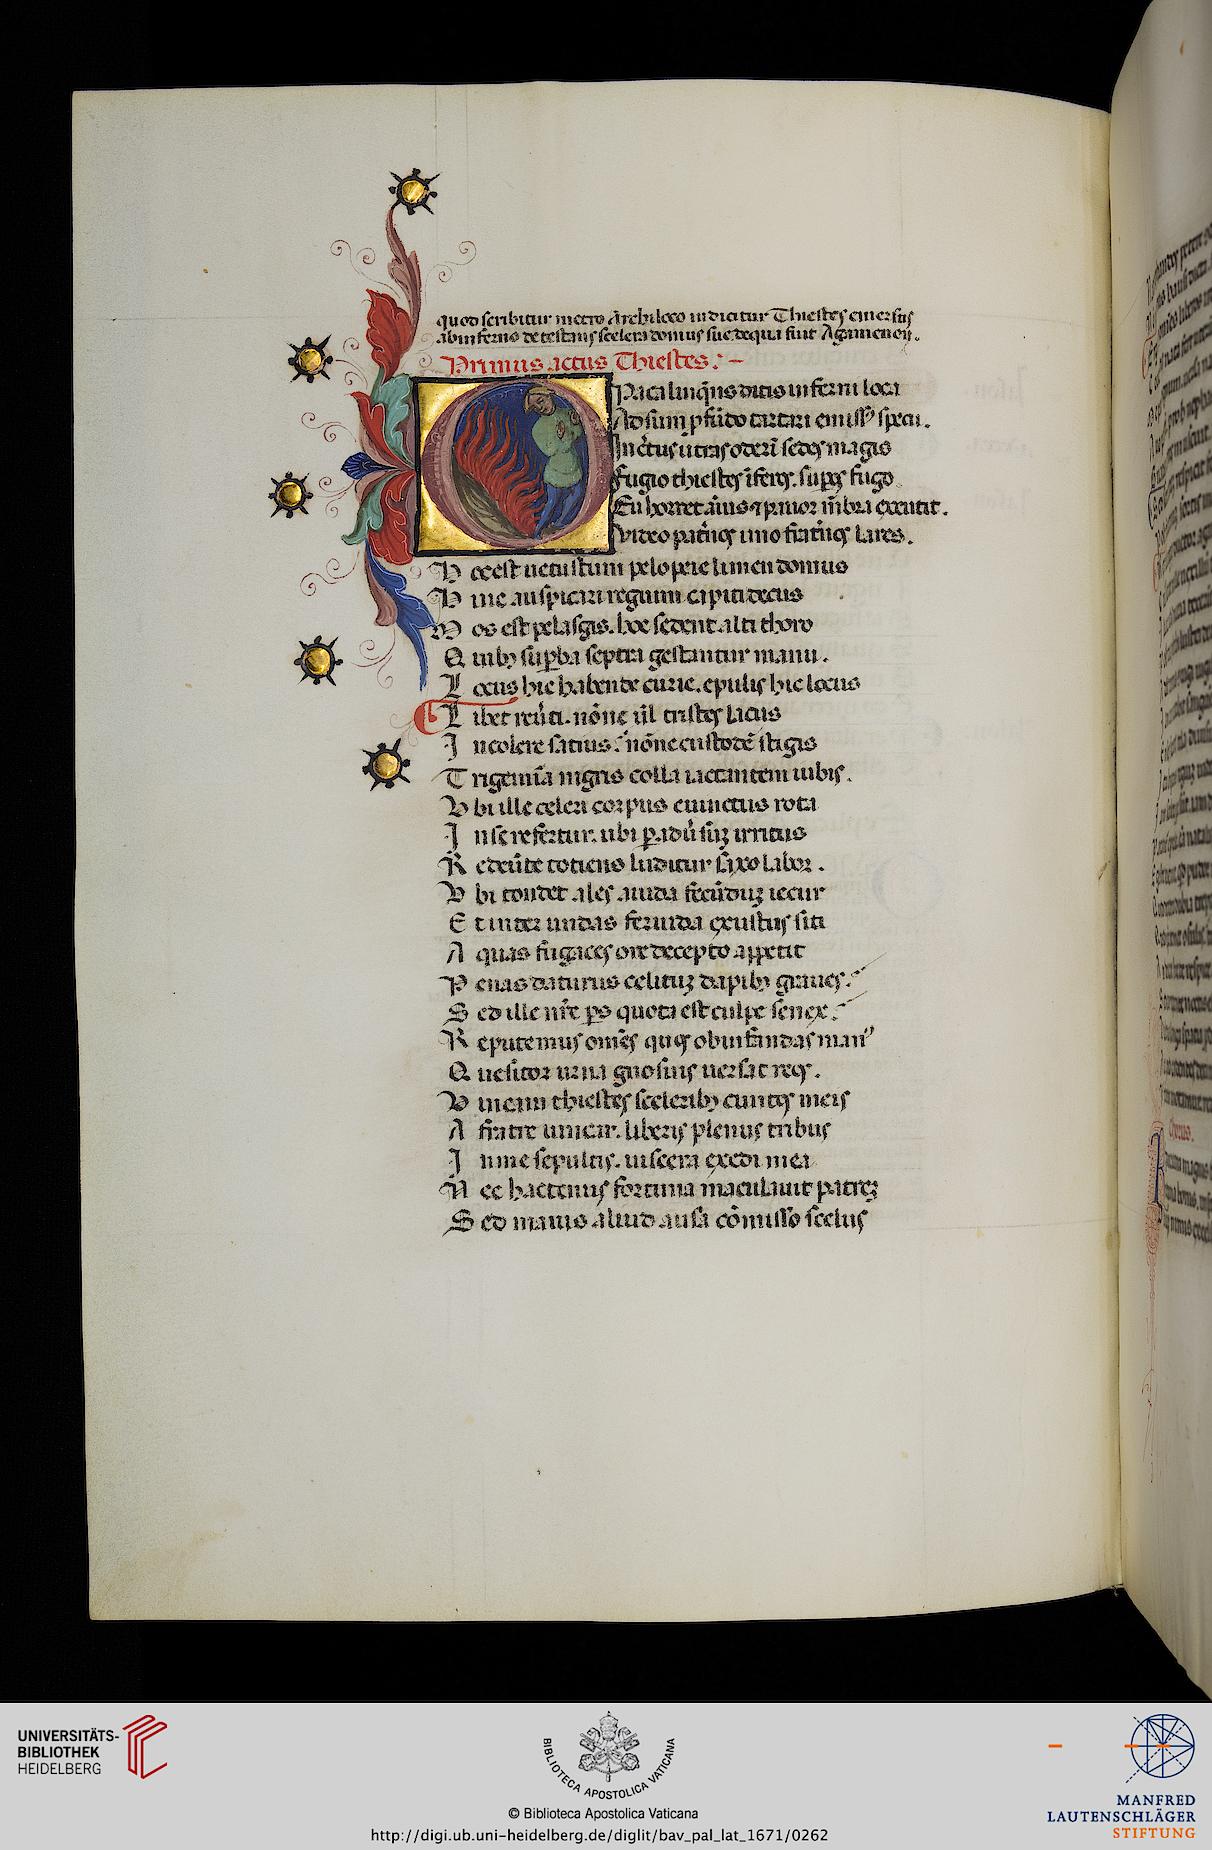 quod scribitur metro Archiloco inducitur Thiestes emersus
ab inferno detestans scelera domus sue de qua fuit Agamenon.
Primus actus Thiestes:-
Opaca linqͥns ditis inferni loca
Adsum ꝓfūdo tartari emissꝰ specu.
Incͭus utras oderī sedes magis
Fugio thiestes īferos. suꝑos fugo
En horret aīus ⁊ pauor mēbra excutit.
Video patͥos imo fratͥos lares.
Hoc est uetustum pelopeie limen domus
Hinc auspicari regium capiti decus
Mos est pelasgis. hoc sedent alti thoro
Quibꝫ suꝑba septra gestantur manu.
Locus hic habende curie. epulis hic locus
Libet reūti. nōne ul̄ tristes lacus
Incolere satius. nōne custodē stigis
Trigeminā nigris colla iactantem iubis.
Vbi ille celeri corpus euinctus rota
In se refertur. ubi ꝑ arduū suꝫ irritus
Redeūte totiens luditur saxo labor.
Vbi tondet ales auida fecūduꝫ iecur
Et inter undas feruida exustus siti
Aquas fugaces ore decepto appetit
Penas daturus celituꝫ dapibꝫ graues.
Sed ille nr̄e ꝑs quota est culpe senex.
Reputemus omēs quos ob infandas manꝰ
Quesitor urna gnosius uersat reos.
Vincam thiestes sceleribꝫ cunctos meis
A fratre uincar. liberis plenus tribus
In me sepultis. uiscera exedi mea
Nec hactenus fortuna maculauit patreꝫ
Sed maius aliud ausa cōmisso scelus
UNIVERSITÄTS-
BIBLIOTHEK
HEIDELBERG
BIBLIOTECA APOSTOLICA VATICANA
© Biblioteca Apostolica Vaticana
http://digi.ub.uni-heidelberg.de/diglit/bav_pal_lat_1671/0262
MANFRED
LAUTENSCHLÄGER
STIFTUNG